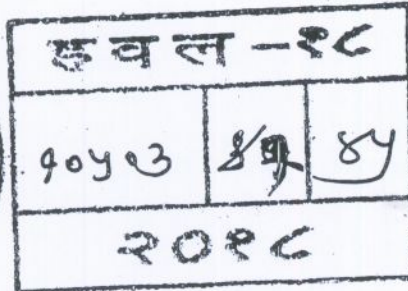 हवल - १८
१०५०३ ४५
२०१८